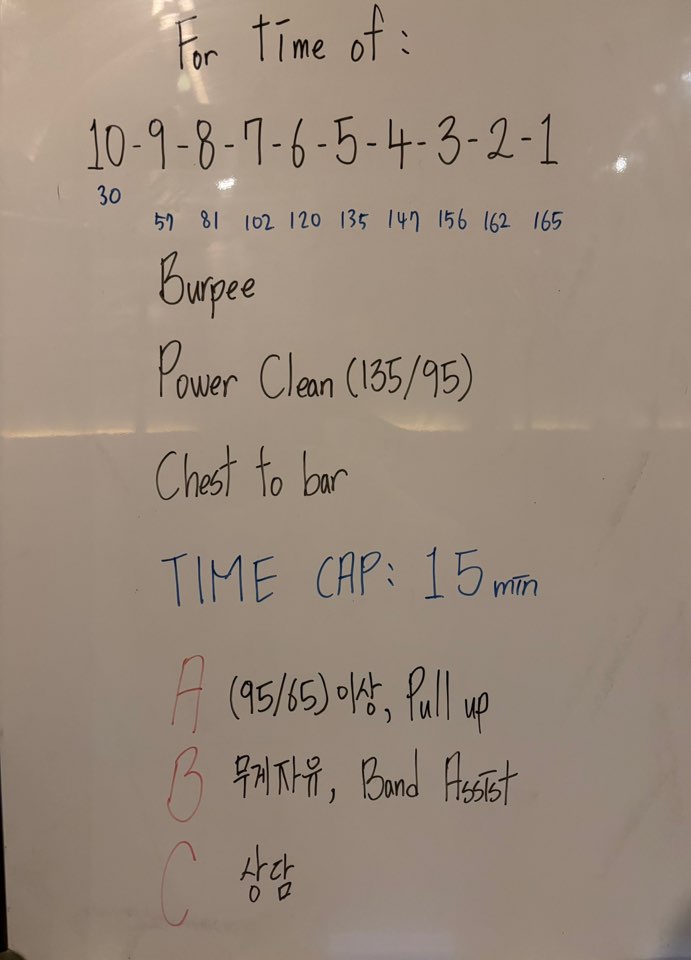 For time of:
10-9-8-7-6-5-4-3-2-1
30 57 81 102 120 135 147 156 162 165
Burpee
Power Clean (135/95)
Chest to bar
TIME CAP: 15 min
A (95/65)이상, Pull up
B 무게자유, Band Assist
C 상담